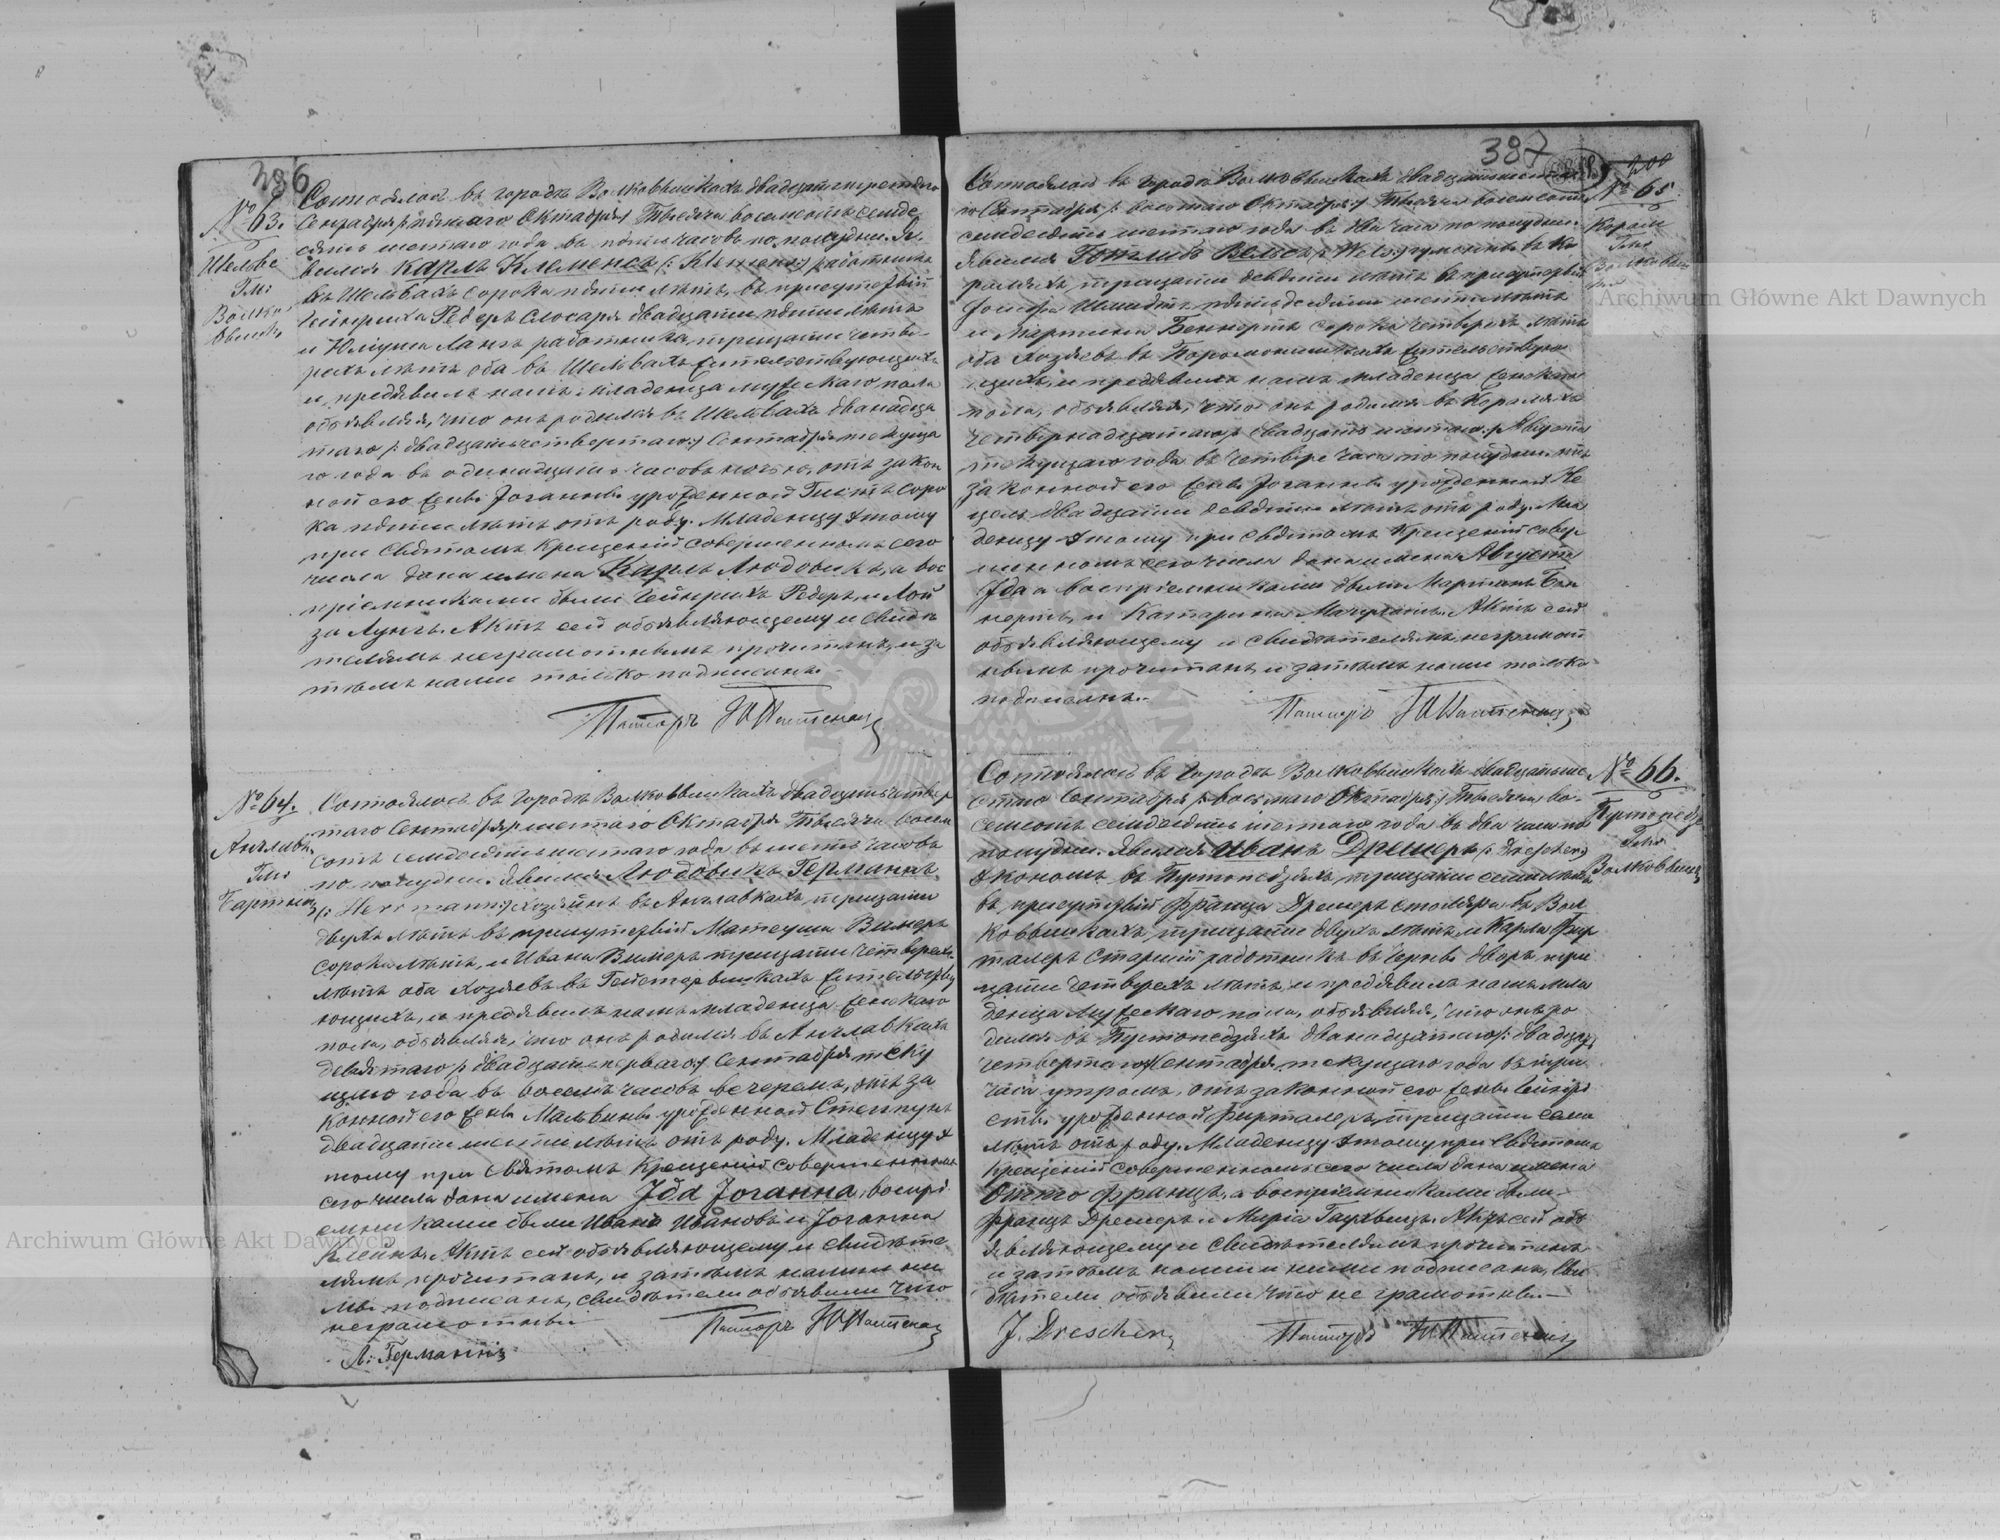 386
№ 63.
Шельве
Гм:
Волко-
вышк.
Состоялось въ городѣ Волковышкахъ двадцать третьяго
Сентября /: пятаго Октября :/ Тысяча восемьсотъ семьде
сятъ шестаго года въ пять часовъ по полудни. Я-
вился Карлъ Клеменсъ (: Klemens :) работникъ
въ Шельвахъ сорока пяти лѣтъ, въ присутствіи
Гейнриха Редеръ слосаря двадцати пяти лѣтъ
и Юліуша Лангъ работника, тридцати четы-
рехъ лѣтъ оба въ Шельвахъ жительствующихъ
и предъявилъ намъ младенца мужескаго пола
объявляя, что онъ родился въ Шельвахъ двѣнадца
таго /: двадцать четвертаго :/ Сентября текуща
го года въ одинадцать часовъ ночью, отъ закон
ной его жены Іоганны урожденной Гистъ соро
ка пяти лѣтъ отъ роду. Младенцу этому
при Святомъ Крещеніи совершенномъ сего
числа дано имена Карлъ Людовикъ, а вос
пріемниками были Гейнрихъ Редеръ, и Лой
за Лунгъ. Актъ сей объявляющему и свидѣ
телямъ неграмотнымъ прочитанъ, и за
тѣмъ нами только подписанъ.
Пасторъ
№ 64.
Англавк.
Гми
Бартник
Состоялось въ городѣ Волковышкахъ двадцать четвер
таго Сентября /: шестаго Октября Тысяча восем
сотъ семьдесятъ шестаго года въ шесть часовъ
по полудни. Явился Людовикъ Германнъ
(: Herrmann :) хозяинъ въ Англавкахъ, тридцати
двухъ лѣтъ въ присутствіи Матеуша Вимеръ
сорока лѣтъ, и Ивана Вимеръ тридцати четырехъ
лѣтъ оба хозяевъ въ жительству
ющихъ, и предъявилъ намъ младенца женскаго
пола, объявляя, что онъ родился въ Англавкахъ
девятаго /: двадцать перваго :/ Сентября теку
щаго года въ восемь часовъ вечеромъ, отъ за
конной его жены Мальвины урожденной Степпунъ
двадцати шести лѣтъ отъ роду. Младенцу э
тому при Святомъ Крещеніи совершенномъ
сего числа дано имена Іда Іоганна, воспрі
емниками были Иванъ Ивановъ и Іоганна
Клейнъ. Актъ сей объявляющему и свидѣте
лямъ, прочитанъ, и затѣмъ нами и ни
мъ подписанъ, свидѣтели объявили что
неграмотны.
Пасторъ
Л. Германнъ
387
200
№ 65
Корали
Гми
Волковыш
Состоялось въ городѣ Волковышкахъ двадцать шес
го Сентября /: восьмаго Октября :/ Тысяча восемьсотъ
семьдесятъ шестаго года въ два часа по полудни.
Явился Готлибъ Вельсъ (: Wels :) въ Ко
раляхъ, тридцати девяти лѣтъ въ присутствіи
Іосифа Шмидтъ пятьдесяти шести лѣтъ
и Мартина Беннертъ сорока четырехъ лѣтъ
оба хозяевъ въ жительствую
щихъ, и предъявилъ намъ младенца женскаго
пола, объявляя, что онъ родился въ Кораляхъ
четырнадцатаго /: двадцать шестаго :/ Августа
текущаго года въ четыре часа по полудни отъ
законной его жены Іоганны урожденной Не
цель двадцати девяти лѣтъ отъ роду. Мла
денцу этому при святомъ Крещеніи совер
шенномъ сего числа дано имена Августа
Іда а воспріемниками были Мартинъ Бен
нертъ, и Катарина Актъ сей
объявляющему и свидѣтелямъ неграмот
нымъ прочитанъ и затѣмъ нами только
подписанъ.
Пасторъ
№ 66.
Пустопедзе
Гми
Волковышк
Состоялось въ городѣ Волковышкахъ двадцать ше
стаго Сентября /: восьмаго Октября :/ Тысяча во-
семсотъ семьдесятъ шестаго года въ два часа по
полудни. Явился Иванъ Дрешеръ (: Drescher :)
экономъ въ Пустопедзяхъ, тридцати семи лѣтъ
въ присутствіи Франца Дрешеръ столяра въ Вол
ковышкахъ, тридцати двухъ лѣтъ, и Карла Фир
талеръ старшій работникъ въ дворѣ, три
дцати четырехъ лѣтъ, и предъявилъ намъ мла
денца мужескаго пола, объявляя, что онъ ро
дился въ Пустопедзяхъ двѣнадцатаго /: двадцать
четвертаго :/ Сентября, текущаго года въ три
часа утромъ, отъ законной его жены
урожденной Фирталеръ, тридцати семи
лѣтъ отъ роду. Младенцу этому при Святомъ
Крещеніи совершенномъ сего числа дано имена
Отто Францъ, а воспріемниками были
Францъ Дрешеръ и Марія Актъ сей объ
являющему и свидѣтелямъ прочитанъ
и затѣмъ нами и ними подписанъ, сви
дѣтели объявили что не грамотны.
J. Drescher
Пасторъ
Archiwum Główne Akt Dawnych
Archiwum Główne Akt Dawnych